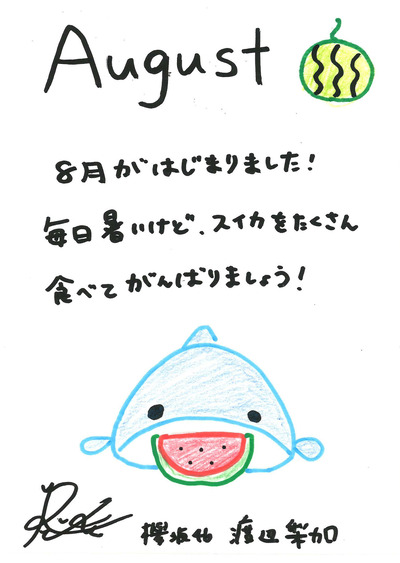 August
8月がはじまりました!
毎日暑いけど、スイカをたくさん
食べてがんばりましょう!
欅坂46 渡辺梨加